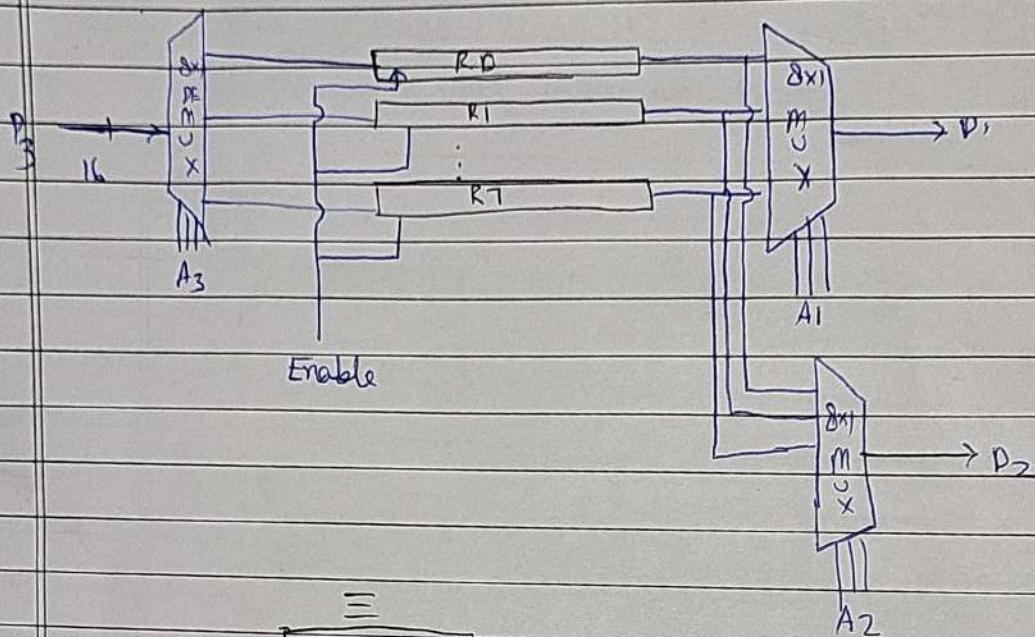 8x1
DE
M
U
X
D3
16
A3
R0
R1
R7
Enable
8x1
M
U
X
D1
A1
8x1
M
U
X
D2
A2